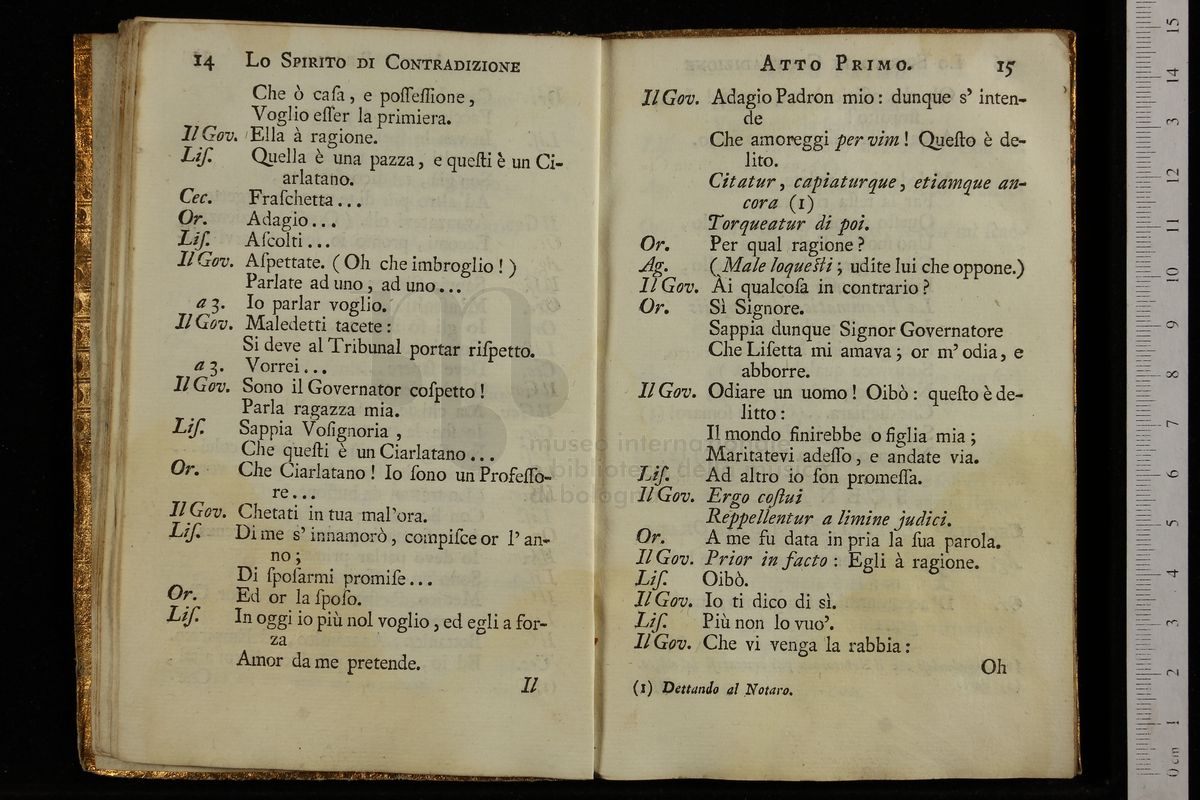 14 Lo Spirito di Contradizione
Che ò caſa, e poſſeſſione,
Voglio eſſer la primiera.
Il Gov. Ella à ragione.
Liſ. Quella è una pazza, e queſti è un Ci-
arlatano.
Cec. Fraſchetta...
Or. Adagio...
Liſ. Aſcolti...
Il Gov. Aſpettate. (Oh che imbroglio!)
Parlate ad uno, ad uno...
a 3. Io parlar voglio.
Il Gov. Maledetti tacete:
Si deve al Tribunal portar riſpetto.
a 3. Vorrei...
Il Gov. Sono il Governator coſpetto!
Parla ragazza mia.
Liſ. Sappia Voſignoria,
Che queſti è un Ciarlatano...
Or. Che Ciarlatano! Io ſono un Profeſſo-
re...
Il Gov. Chetati in tua mal'ora.
Liſ. Di me s' innamorò, compiſce or l' an-
no;
Di ſpoſarmi promiſe...
Or. Ed or la ſpoſo.
Liſ. In oggi io più nol voglio, ed egli a for-
za
Amor da me pretende.
Il
Atto Primo. 15
Il Gov. Adagio Padron mio: dunque s' inten-
de
Che amoreggi per vim! Queſto è de-
lito.
Citatur, capiaturque, etiamque an-
cora (1)
Torqueatur di poi.
Or. Per qual ragione?
Ag. (Male loqueſti; udite lui che oppone.)
Il Gov. Ai qualcoſa in contrario?
Or. Sì Signore.
Sappia dunque Signor Governatore
Che Liſetta mi amava; or m' odia, e
abborre.
Il Gov. Odiare un uomo! Oibò: queſto è de-
litto:
Il mondo finirebbe o figlia mia;
Maritatevi adeſſo, e andate via.
Liſ. Ad altro io ſon promeſſa.
Il Gov. Ergo coſtui
Reppellentur a limine judici.
Or. A me fu data in pria la ſua parola.
Il Gov. Prior in facto: Egli à ragione.
Liſ. Oibò.
Il Gov. Io ti dico di sì.
Liſ. Più non lo vuo'.
Il Gov. Che vi venga la rabbia:
Oh
(1) Dettando al Notaro.
museo internazionale
e biblioteca della musica
di bologna
0 cm 1 2 3 4 5 6 7 8 9 10 11 12 13 14 15